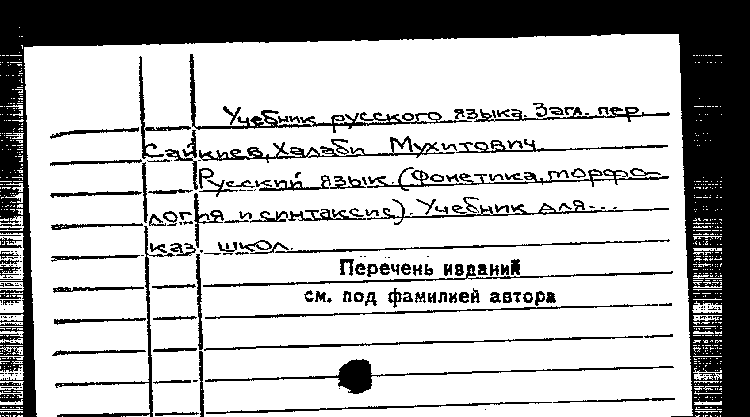 Учебник русского языка. Загл. пер.
Сайкиев, Халаби Мухитович
Русский язык (Фонетика, морфо-
логия и синтаксис). Учебник для...
каз. школ.
Перечень изданий
см. под фамилией автора